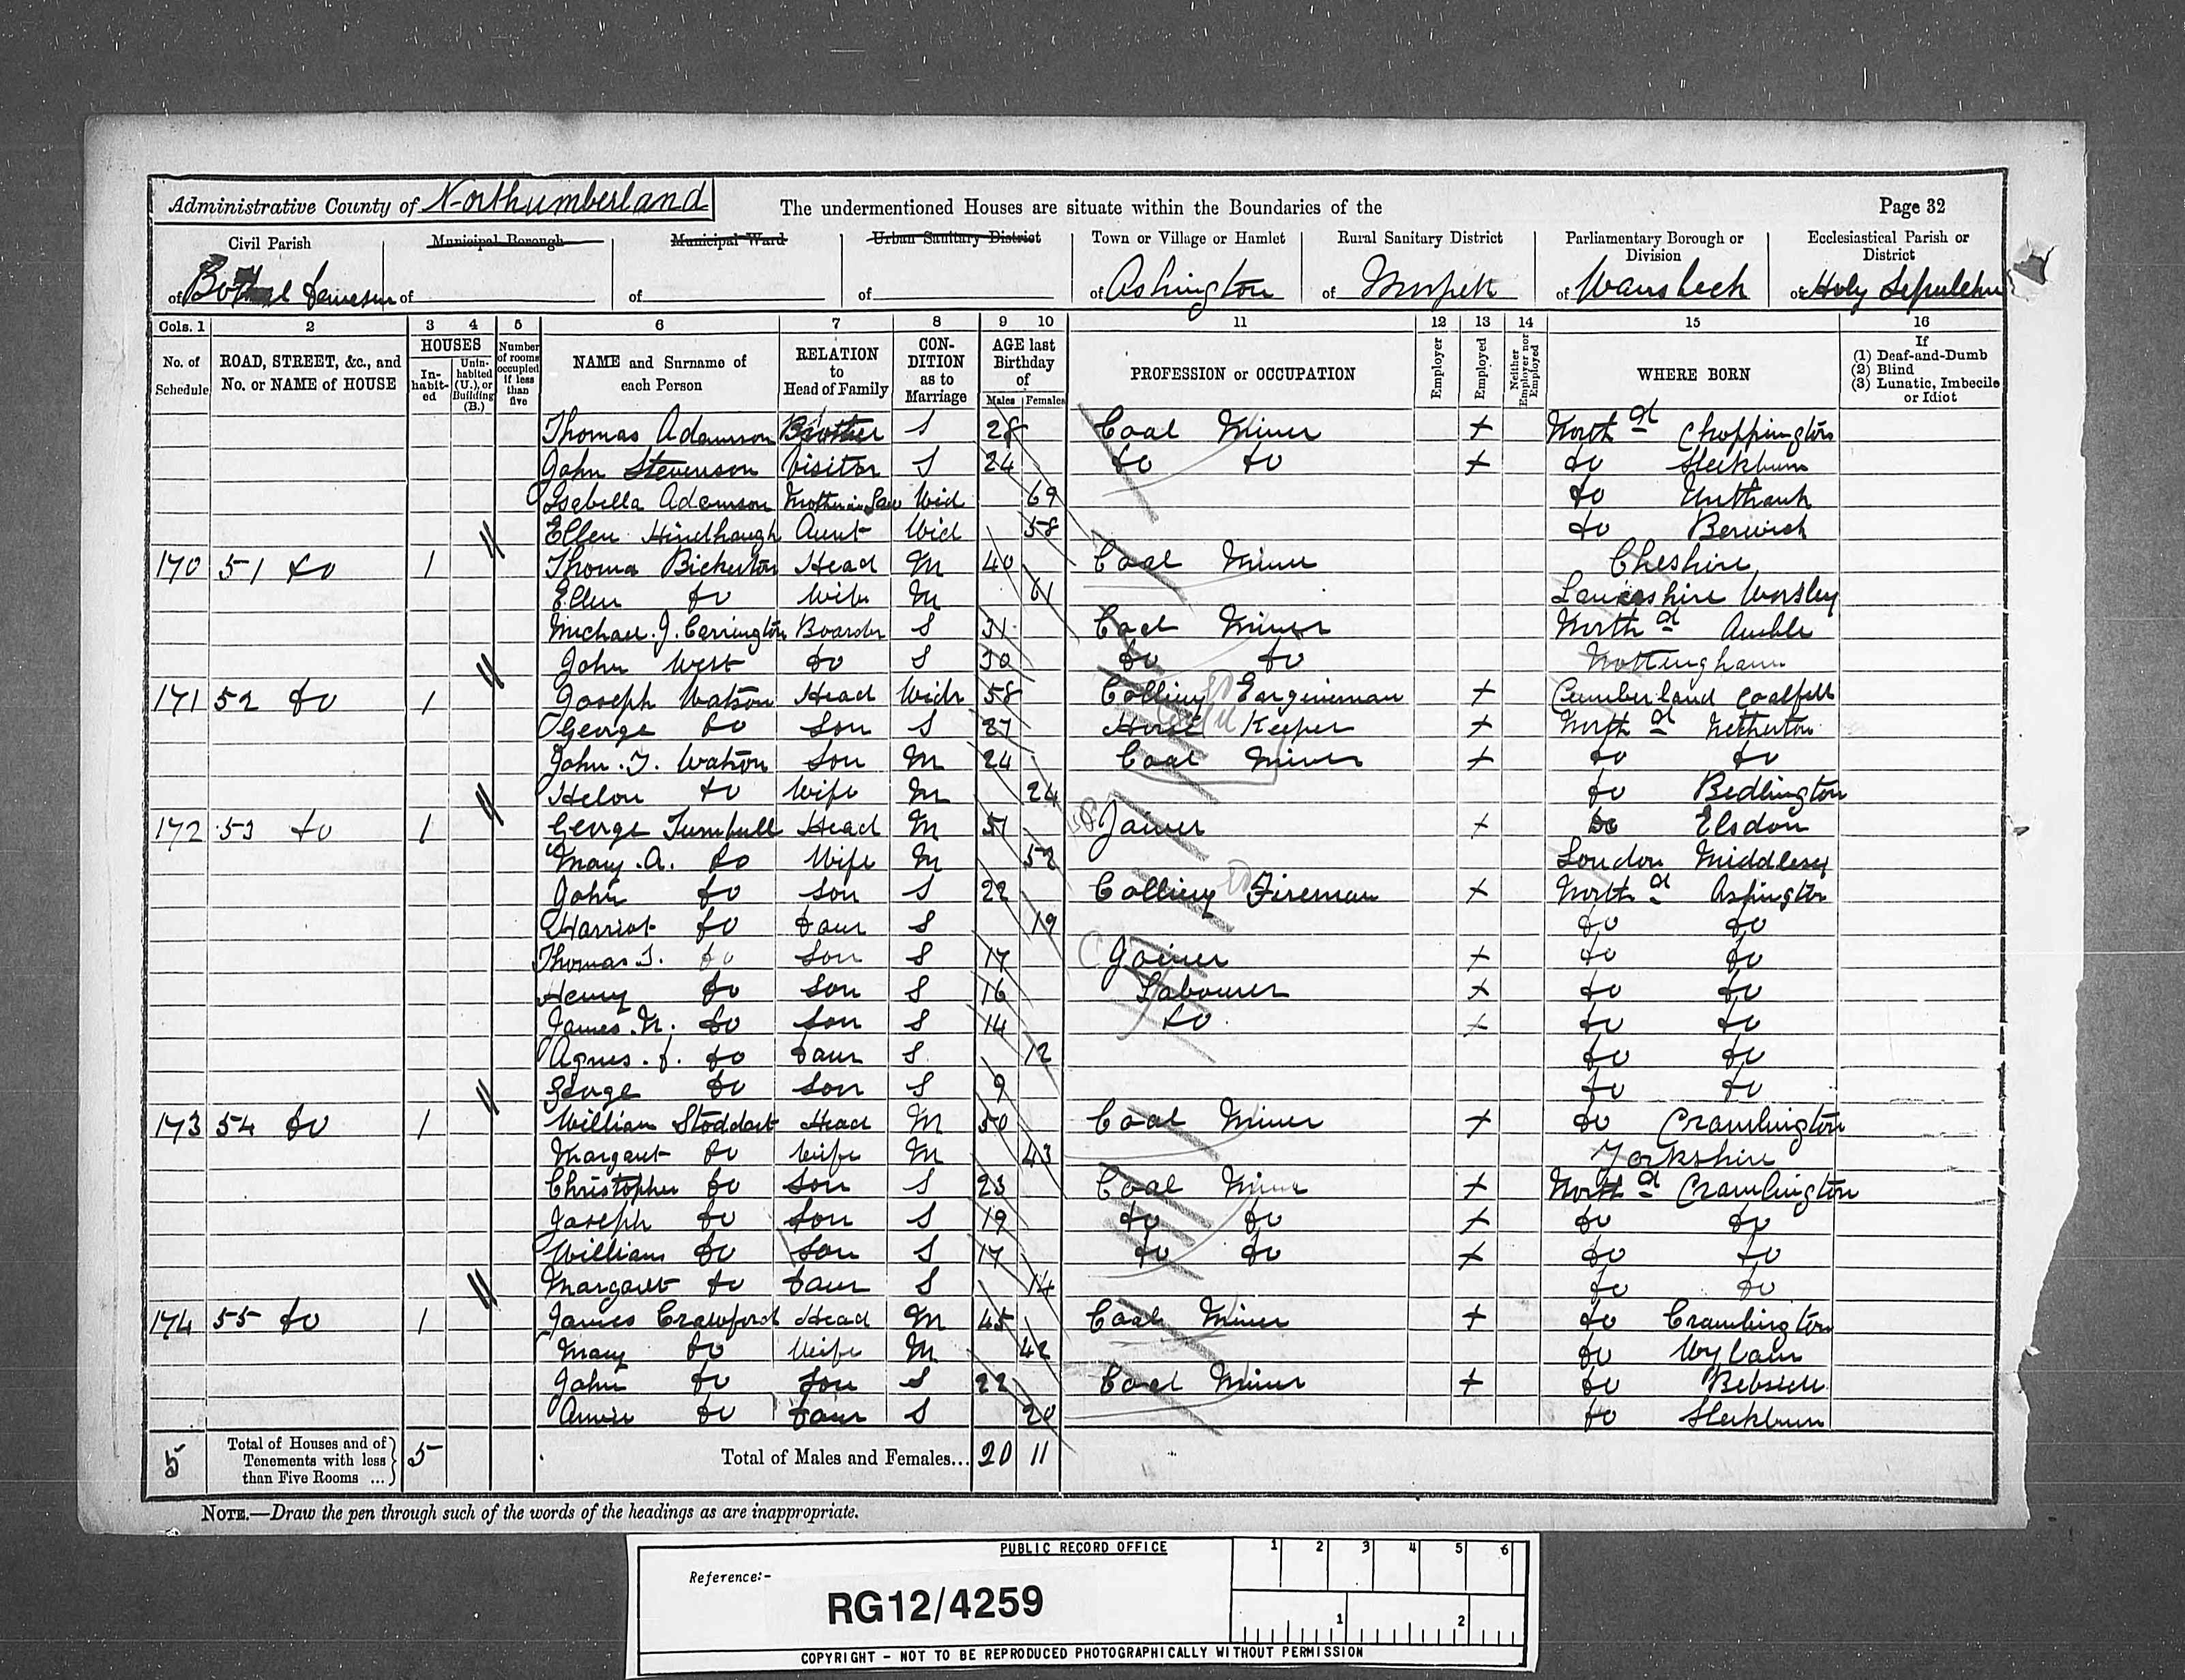 Administrative County of Northumberland The undermentioned Houses are situate within the Boundaries of the Page 32
Civil Parish Municipal Borough Municipal Ward Urban Sanitary District Town or Village or Hamlet Rural Sanitary District Parliamentary Borough or Division Ecclesiastical Parish or District
of of of of of Ashington of Morpeth of Wansbeck of Holy Sepulchre
Cols. 1 2 3 4 5 6 7 8 9 10 11 12 13 14 15 16
No. of Schedule ROAD, STREET, &c., and No. or NAME of HOUSE HOUSES In-habit-ed Unin-habited (U.), or Building (B.) Number of rooms occupied if less than five NAME and Surname of each Person RELATION to Head of Family CON-DITION as to Marriage AGE last Birthday of Males Females PROFESSION or OCCUPATION Employer Employed Neither Employer nor Employed WHERE BORN If (1) Deaf-and-Dumb (2) Blind (3) Lunatic, Imbecile or Idiot
Thomas Adamson Brother S 28 Coal Miner X North d Choppington
John Stevenson Visitor S 24 do do X do Sleekburn
Isabella Adamson Mother in Law Wid 69 do Unthank
Ellen Hindhaugh Aunt Wid 58 do Berwick
170 51 do 1 Thomas Bickerton Head M 40 Coal Miner Cheshire
Ellen do Wife M 61 Lancashire Worsley
Michael. J. Carrington Boarder S 31 Coal Miner North d Amble
John West do S 30 do do Nottingham
171 52 do 1 Joseph Watson Head Widr 58 Colliery Engineman X Cumberland Coalfell
George do Son S 27 Horse Keeper X North d Netherton
John. T. Watson Son M 24 Coal Miner X do do
Helon do Wife M 24 do Bedlington
172 53 do 1 George Turnbull Head M 51 Joiner X do Elsdon
Mary. A. do Wife M 52 London Middlesex
John do Son S 22 Colliery Fireman X North d Ashington
Harriot do Daur S 19 do do
Thomas J. do Son S 17 Joiner X do do
Henry do Son S 16 Labourer X do do
James. N. do Son S 14 do X do do
Agnes. J. do Daur S 12 do do
George do Son S 9 do do
173 54 do 1 William Stoddart Head M 50 Coal Miner X do Cramlington
Margaret do Wife M 43 Yorkshire
Christopher do Son S 23 Coal Miner X North d Cramlington
Joseph do Son S 19 do do X do do
William do Son S 17 do do X do do
Margaret do Daur S 14 do do
174 55 do 1 James Crawford Head M 45 Coal Miner X do Cramlington
Mary do Wife M 42 do Wylam
John do Son S 22 Coal Miner X do Bebside
Annie do Daur S 20 do Sleekburn
5 Total of Houses and of Tenements with less than Five Rooms ... 5 Total of Males and Females... 20 11
NOTE.—Draw the pen through such of the words of the headings as are inappropriate.
PUBLIC RECORD OFFICE 1 2 3 4 5 6
Reference:-
RG12/4259
1 2
COPYRIGHT - NOT TO BE REPRODUCED PHOTOGRAPHICALLY WITHOUT PERMISSION